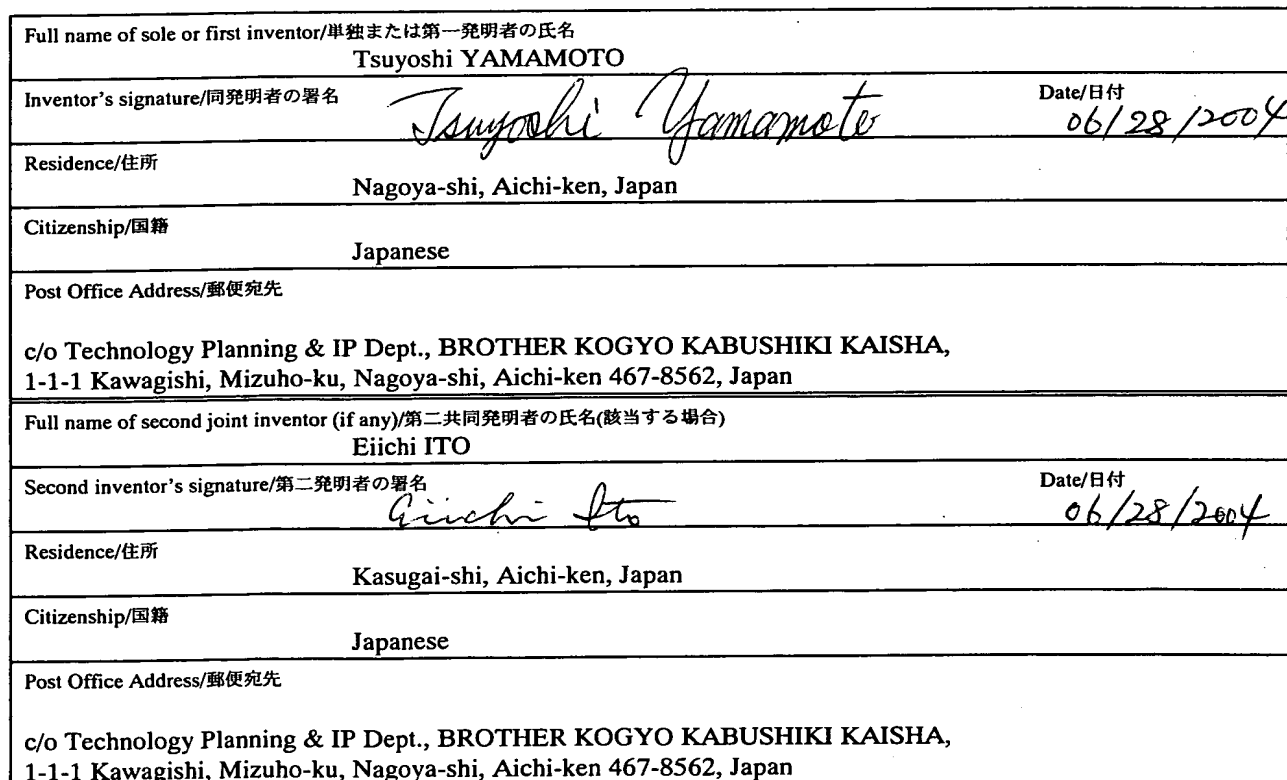 Full name of sole or first inventor/単独または第一発明者の氏名
Tsuyoshi YAMAMOTO
Inventor's signature/同発明者の署名 Tsuyoshi Yamamoto Date/日付 06/28/2004
Residence/住所
Nagoya-shi, Aichi-ken, Japan
Citizenship/国籍
Japanese
Post Office Address/郵便宛先
c/o Technology Planning & IP Dept., BROTHER KOGYO KABUSHIKI KAISHA,
1-1-1 Kawagishi, Mizuho-ku, Nagoya-shi, Aichi-ken 467-8562, Japan
Full name of second joint inventor (if any)/第二共同発明者の氏名(該当する場合)
Eiichi ITO
Second inventor's signature/第二発明者の署名 Eiichi Ito Date/日付 06/28/2004
Residence/住所
Kasugai-shi, Aichi-ken, Japan
Citizenship/国籍
Japanese
Post Office Address/郵便宛先
c/o Technology Planning & IP Dept., BROTHER KOGYO KABUSHIKI KAISHA,
1-1-1 Kawagishi, Mizuho-ku, Nagoya-shi, Aichi-ken 467-8562, Japan